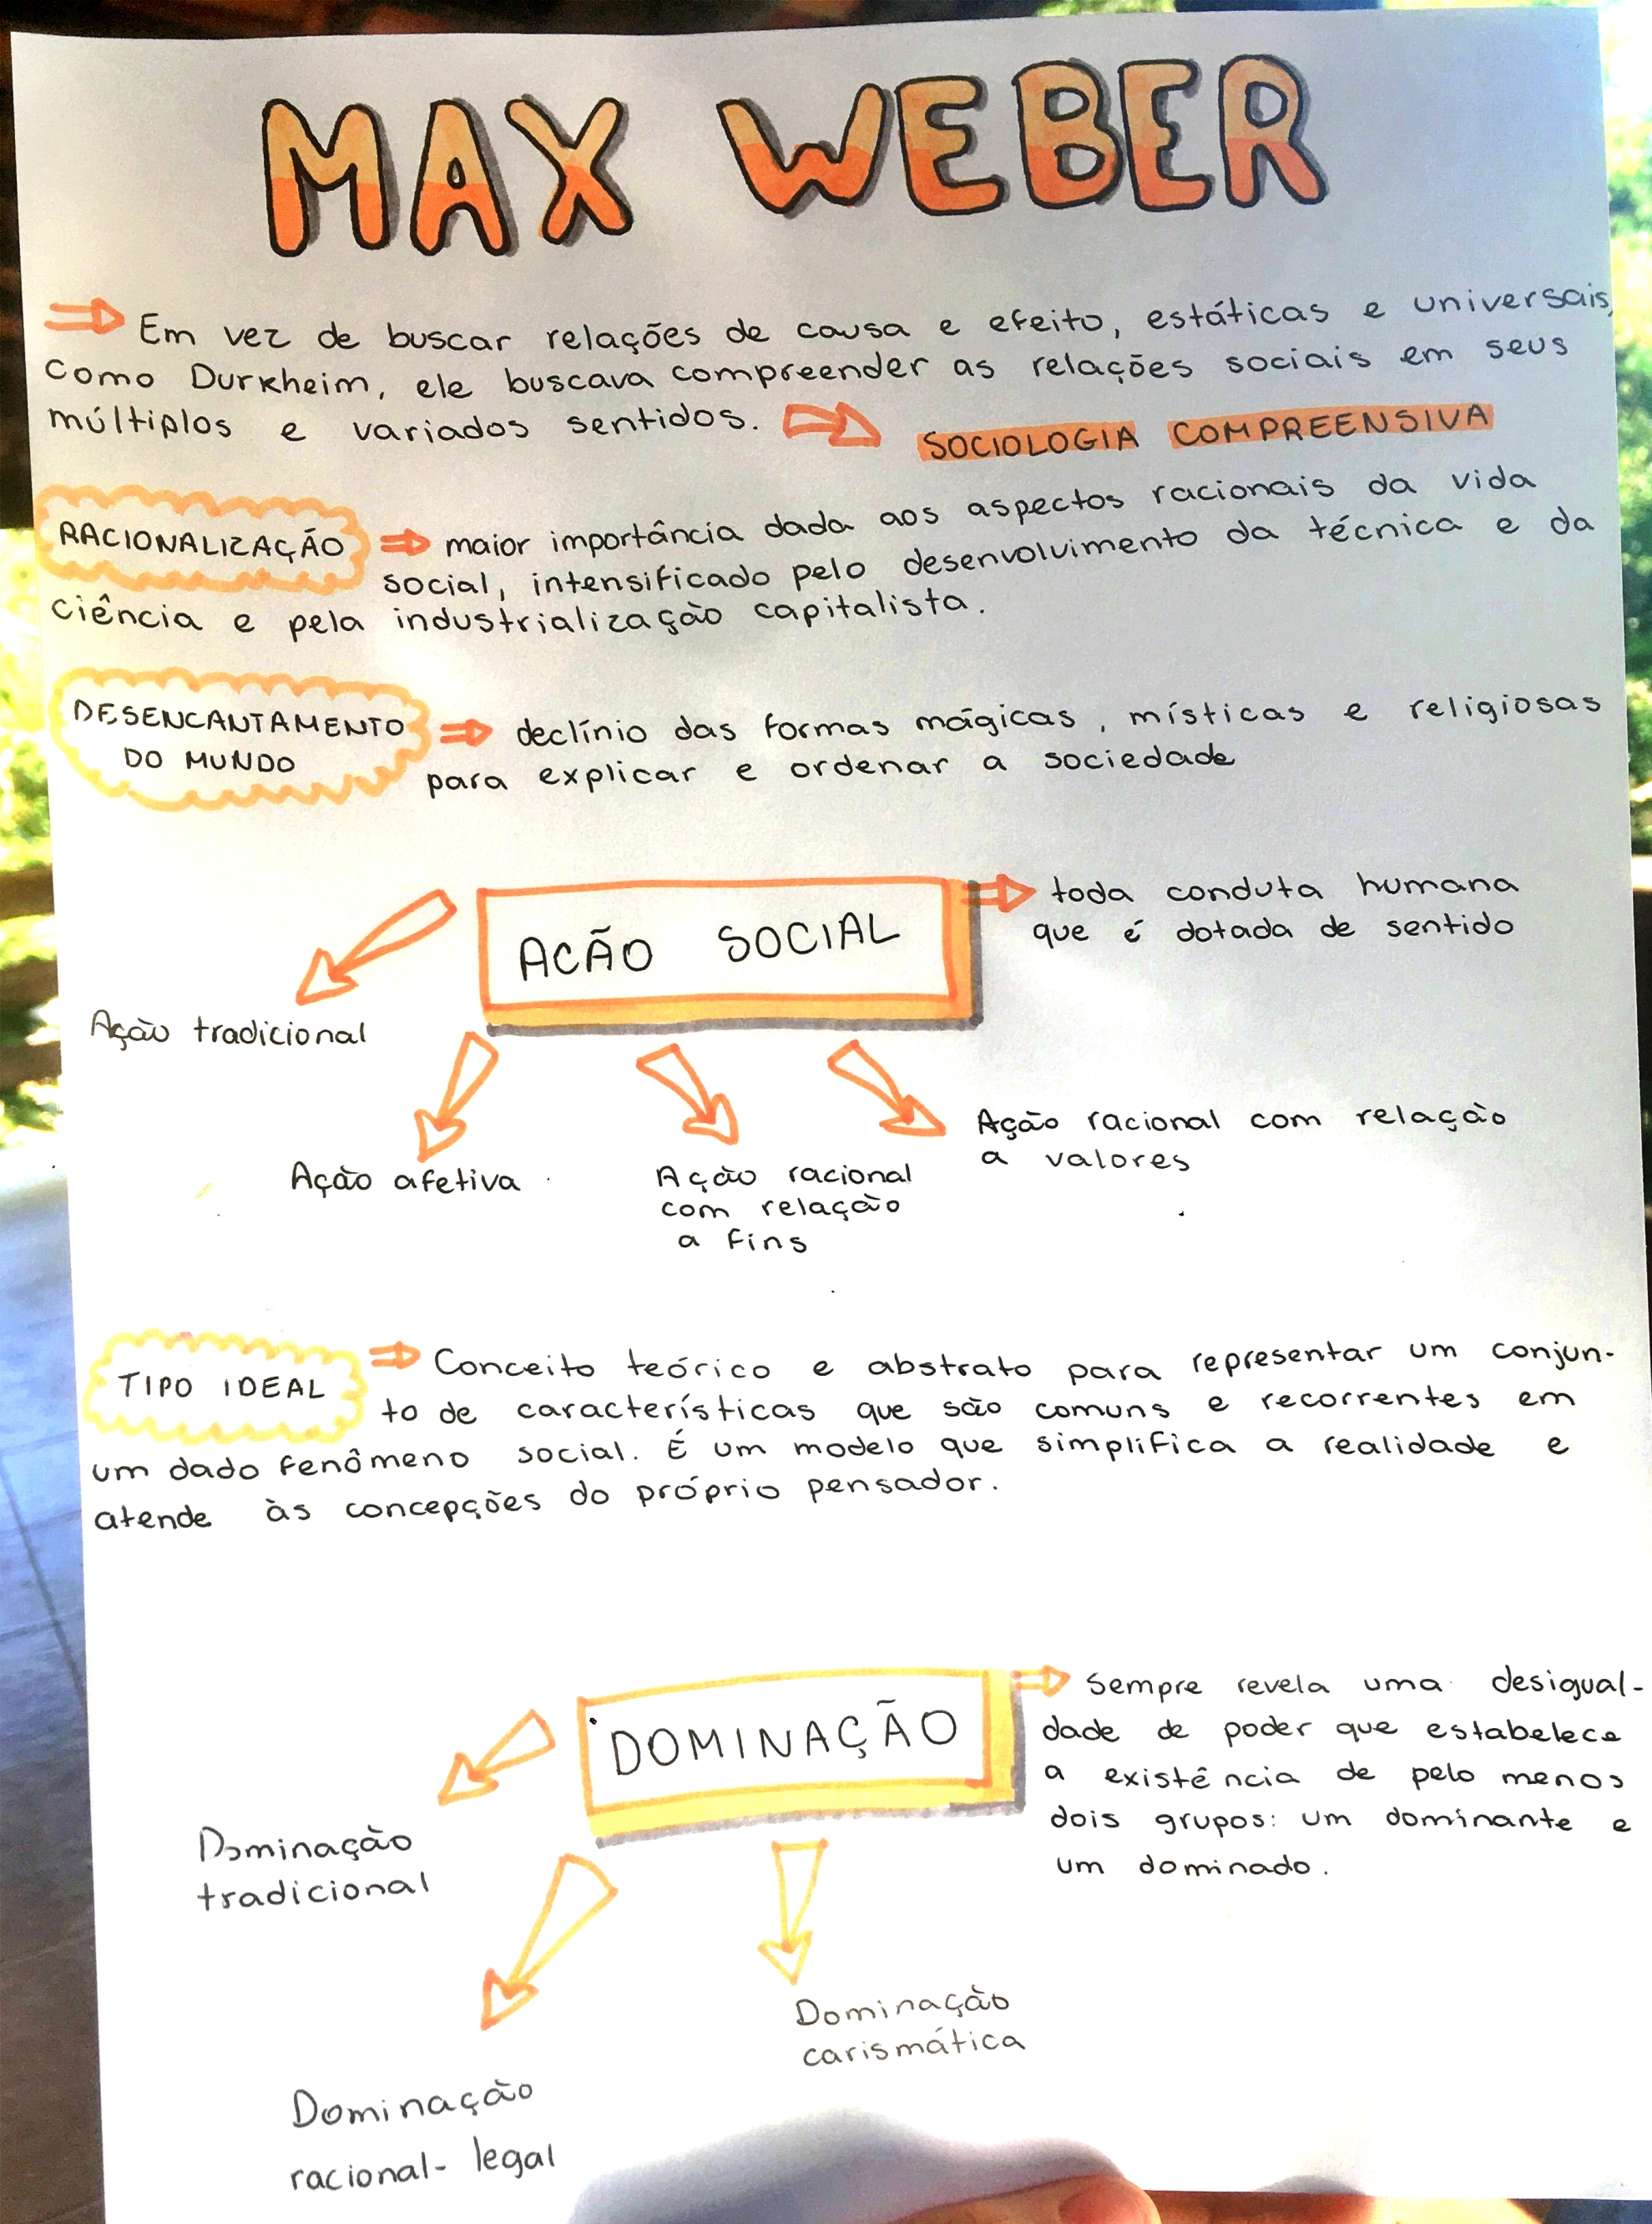 MAX WEBER
⇒ Em vez de buscar relações de causa e efeito, estáticas e universais,
como Durkheim, ele buscava compreender as relações sociais em seus
múltiplos e variados sentidos. ⇒ SOCIOLOGIA COMPREENSIVA
RACIONALIZAÇÃO ⇒ maior importância dada aos aspectos racionais da vida
social, intensificado pelo desenvolvimento da técnica e da
ciência e pela industrialização capitalista.
DESENCANTAMENTO
DO MUNDO
⇒ declínio das formas mágicas, místicas e religiosas
para explicar e ordenar a sociedade
ACÃO SOCIAL
⇒ toda conduta humana
que é dotada de sentido
Ação tradicional
Ação afetiva
Ação racional
com relação
a fins
Ação racional com relação
a valores
TIPO IDEAL ⇒ Conceito teórico e abstrato para representar um conjun-
to de características que são comuns e recorrentes em
um dado fenômeno social. É um modelo que simplifica a realidade e
atende às concepções do próprio pensador.
DOMINAÇÃO
⇒ Sempre revela uma desigual-
dade de poder que estabelece
a existência de pelo menos
dois grupos: um dominante e
um dominado.
Dominação
tradicional
Dominação
carismática
Dominação
racional-legal